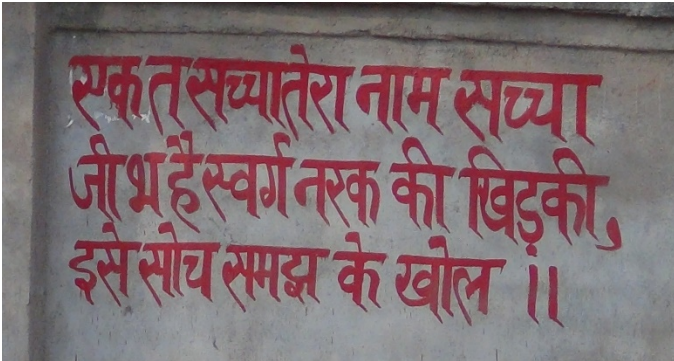 एक त सच्चा तेरा नाम सच्चा
जीभ है स्वर्ग नरक की खिड़की,
इसे सोच समझ के खोल ।।